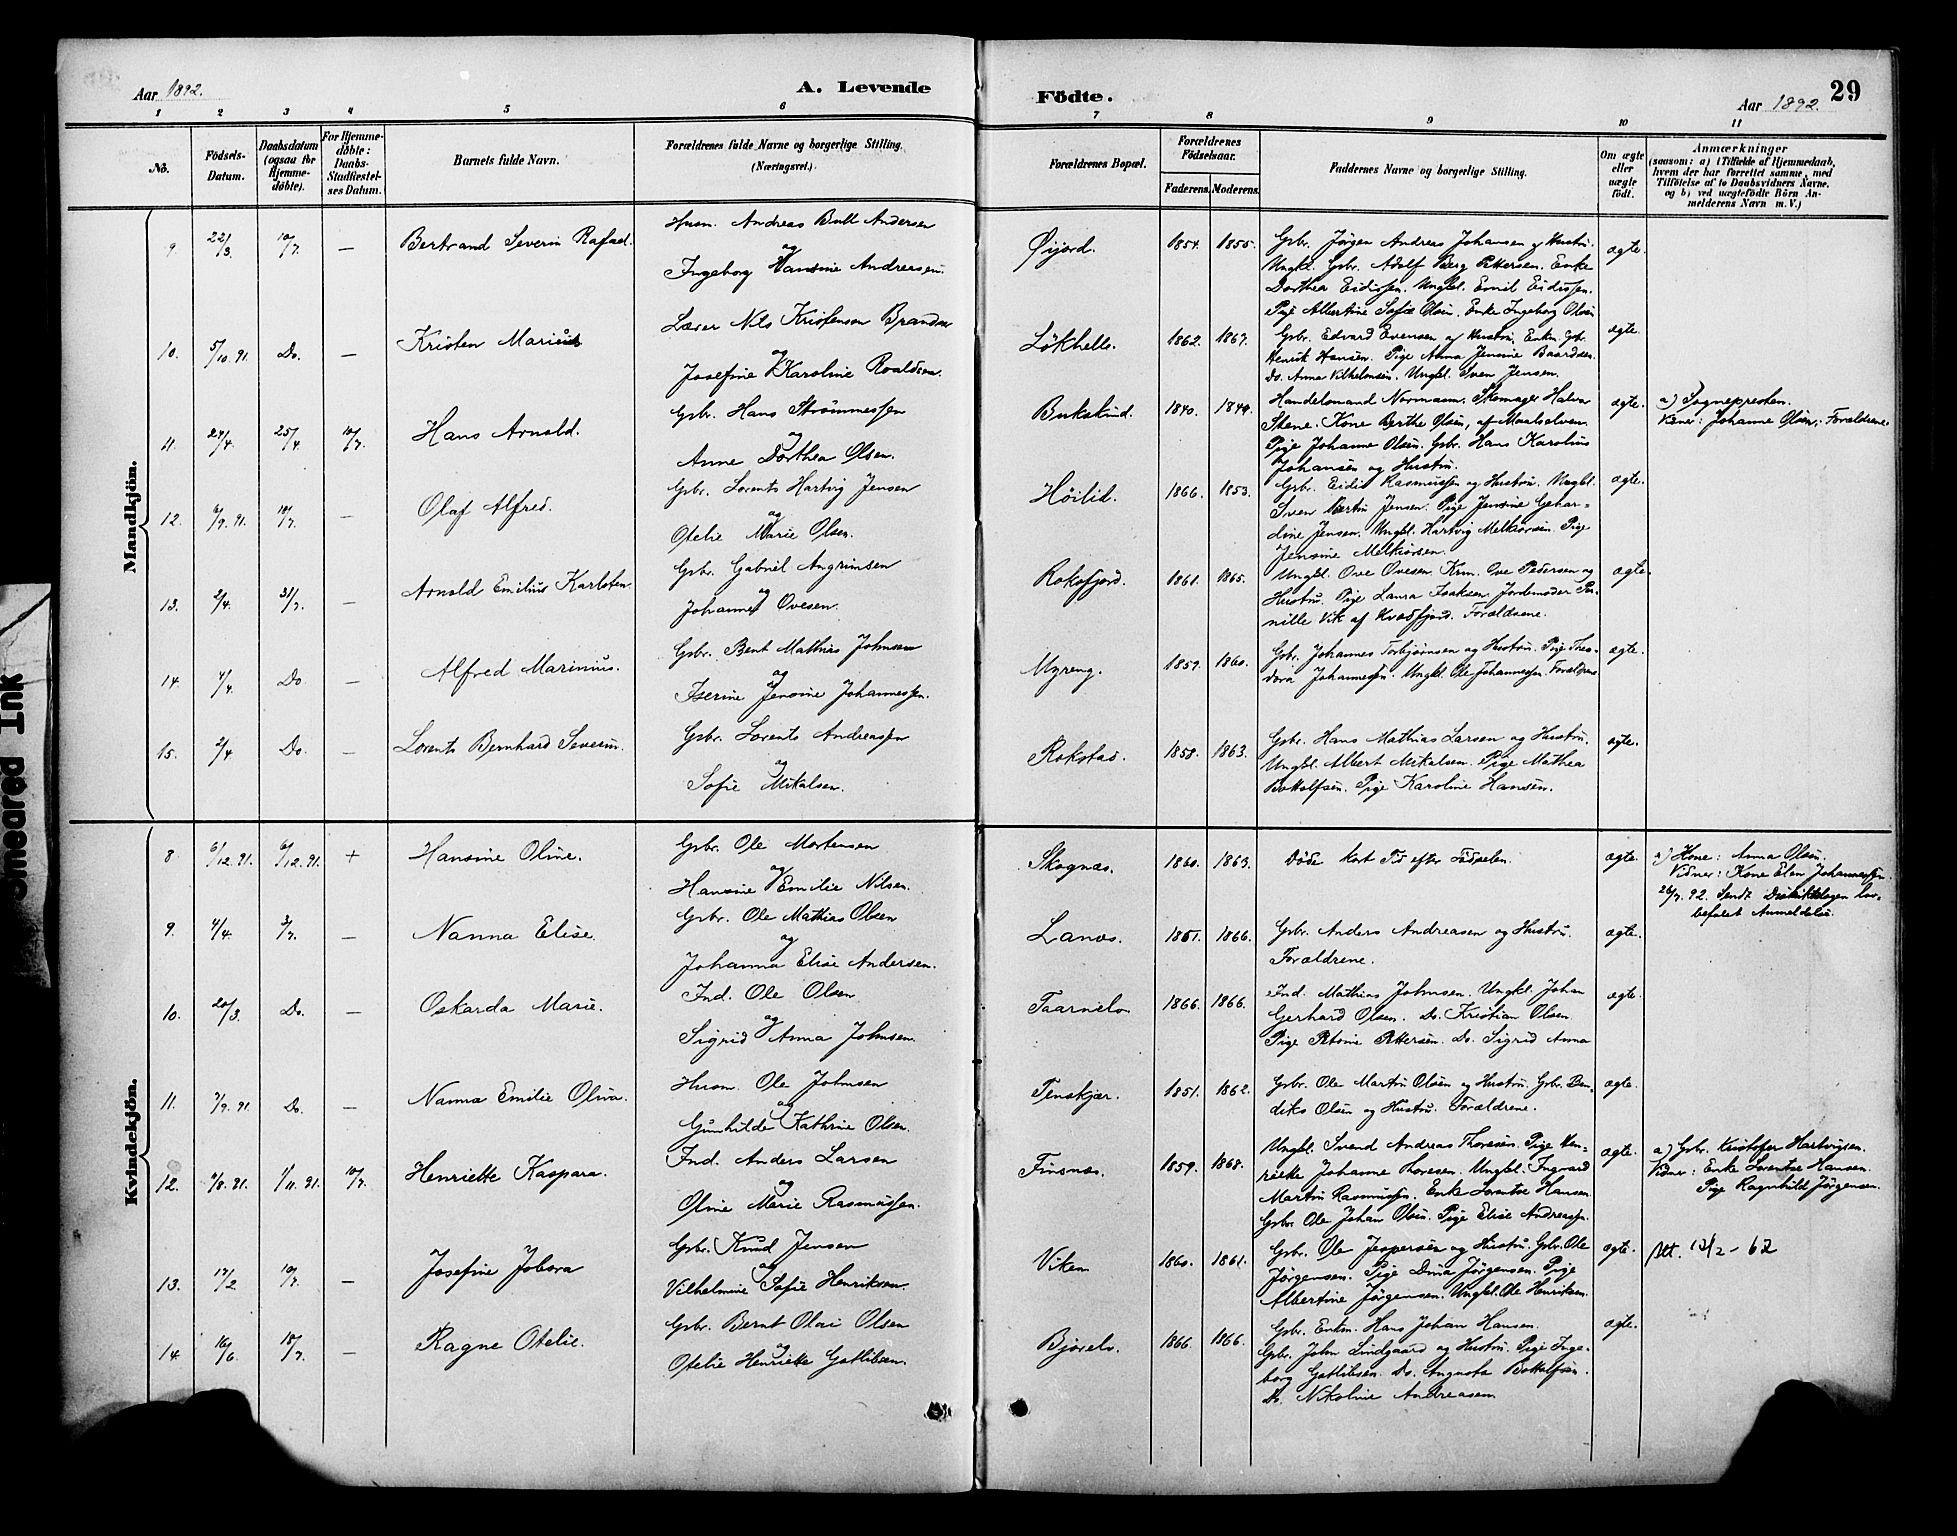 Aar 1892.
A. Levende
Födte.
Aar 1892.
29
1 2 3 4 5 6 7 8 9 10 11
No.
Födsels-
Datum.
Daabsdatum
(ogsaa for
Hjemme-
døbte).
For Hjemme-
døbte:
Daabs-
Stadfæstel-
ses Datum.
Barnets fulde Navn.
Forældrenes fulde Navne og borgerlige Stilling.
(Næringsvei.)
Forældrenes Bopæl.
Forældrenes
Födselsaar.
Faderens. Moderens.
Faddernes Navne og borgerlige Stilling.
Om ægte
eller
uægte
født.
Anmærkninger
(saasom: a) i Tilfælde af Hjemmedaab,
hvem der har forrettet samme, med
Tilföielse af to Daabsvidners Navne.
og b) ved uægtefödte Börn An-
melderens Navn m. V.)
Mandkjön.
9. 22/3 10/7 — Bertrand Severin Rafael.
Husm. Andreas Bull Andersen
og
Ingeborg Hansine Andreasen.
Øijord. 1854. 1855.
Gbr. Jørgen Andreas Johansen og Hustru.
Ungkl. Gbr. Adolf Berg Pettersen. Enke
Dorthea Eidissen. Ungkl. Emil Eidissen.
Pige Albertine Sofie Olsen. Enke Ingeborg Olsen
ægte.
10. 5/10.91. Do. — Kristen Marius
Lærer Nils Kristensen Brandsø
og
Josefine Karoline Roaldsen.
Løkhelle. 1862. 1867.
Gbr. Edvard Evensen og Hustru. Enkm. Gbr.
Henrik Hansen. Pige Anna Jensine Baardsen.
Do. Anna Vilhelmsen. Ungkl. Sven Jensen.
ægte.
11. 24/4. 25/4 10/7. Hans Arnold.
Gbr. Hans Strømmessen
og
Anne Dorthea Olsen.
Bukskind. 1840. 1849.
Handelsmand Normann. Skomager Halvor
Stene. Kone Berthe Olsen, af Maalselven.
Pige Johanne Olsen. Gbr. Hans Karolius
Johansen og Hustru.
ægte.
a) Sognepresten.
Johanne Olsen. Forældrene.
12. 6/9.91. 10/7. — Olaf Alfred.
Gbr. Lorents Hartvig Jensen
og
Otelie Marie Olsen.
Høilid. 1866. 1853.
Gbr. Eidis Rasmussen og Hustru. Ungkl.
Sven Bertin Jensen. Pige Jensine Gehar-
dine Jensen. Ungkl. Hartvig Melkiorsen. Pige
Jensine Melkiorsen.
ægte.
13. 2/4. 31/7. — Arnold Emilius Karlsten.
Gbr. Gabriel Angrimsen
og
Johanne Ovesen.
Roksfjord. 1861. 1865.
Ungkl. Ove Ovesen. Krm. Ove Pedersen og
Hustru. Pige Laura Isaksen. Jordemoder Per-
nille Vik af Kvædfjord. Forældrene.
ægte.
14. 4/4. Do. — Alfred Marinius.
Gbr. Bent Mathias Johnsen
og
Iserine Jensine Johannessen.
Myreng. 1859. 1860.
Gbr. Johannes Torbjørnsen og Hustru. Pige Theo-
dora Johannessen. Ungkl. Ole Johannessen. Forældrene
ægte.
15. 2/4 Do. — Lorents Bernhard Severin.
Gbr. Lorents Andreassen
og
Sofie Mikalsen.
Rokstad. 1858. 1863.
Gbr. Hans Mathias Larsen og Hustru.
Ungkl. Albert Mikalsen. Pige Mathea
Bottolfsen. Pige Karoline Hansen.
ægte.
Kvindekjön.
8. 6/12.91. 6/12.91. + Hansine Oline.
Gbr. Ole Mortensen
og
Hansine Emilie Nilsen.
Skognæs. 1860. 1863.
Døde kort Tid efter Fødselen.
ægte.
a) Kone: Anna Olsen.
Vidner: Kone Elen Johannessen.
26/7.92. Sendt Distriktslægen lov-
befalet Anmeldelse.
9. 4/4. 3/7. — Nanna Elise.
Gbr. Ole Mathias Olsen
og
Johanna Elise Andersen.
Lanæs. 1861. 1866.
Gbr. Anders Andreasen og Hustru.
Forældrene.
ægte.
10. 20/3. Do. — Oskarda Marie.
Ind. Ole Olsen
og
Sigrid Anna Johnsen.
Taarnelv. 1866. 1866.
Ind. Mathias Johnsen. Ungkl. Johan
Gerhard Olsen. Do. Kristian Olsen.
Pige Petrine Pettersen. Do. Sigrid Anna
ægte.
11. 7/9.91. Do. — Nanna Emilie Oliva.
Husm. Ole Johnsen
og
Gunhilde Kathrine Olsen.
Tenskjær. 1851. 1862.
Gbr. Ole Martin Olsen og Hustru. Gbr. Ben-
diks Olsen og Hustru. Forældrene.
ægte.
12. 4/8.91. 1/11.91. 10/7. Henriette Kaspara.
Ind. Anders Larsen
og
Oline Marie Rasmussen.
Finsnæs. 1859. 1868.
Ungkl. Svend Andreas Thoresen. Pige Hen-
rikke Johanne Thoresen. Ungkl. Ingvard
Martin Rasmussen. Enke Lorentse Hansen.
Gbr. Ole Johan Olsen. Pige Elise Andreassen.
ægte.
a) Gbr. Kristofer Hartvigsen.
Vidner: Enke Lorentse Hansen.
Pige Ragnhilde Jørgensen.
13. 17/2 10/7. — Josefine Jobora
Gbr. Knud Jensen
og
Vilhelmine Sofie Henriksen.
Viken 1860. 1861.
Gbr. Ole Jespersen og Hustru. Gbr. Ole
Jørgensen. Pige Dina Jørgensen. Pige
Albertine Jørgensen. Ungkl. Ole Henriksen.
ægte.
Att. 12/2 - 62
14 16/6. 10/7. — Ragne Otelie.
Gbr. Bernt Olai Olsen
og
Otelie Henrikke Gottlibsen.
Bjorelv. 1866. 1866.
Gbr. Enkm. Hans Johan Hansen.
Gbr. John Lindgaard og Hustru. Pige Inge-
borg Gottlibsen. Do. Augusta Bottolfsen.
Do. Nikoline Andreasen
ægte.
Smeared Ink